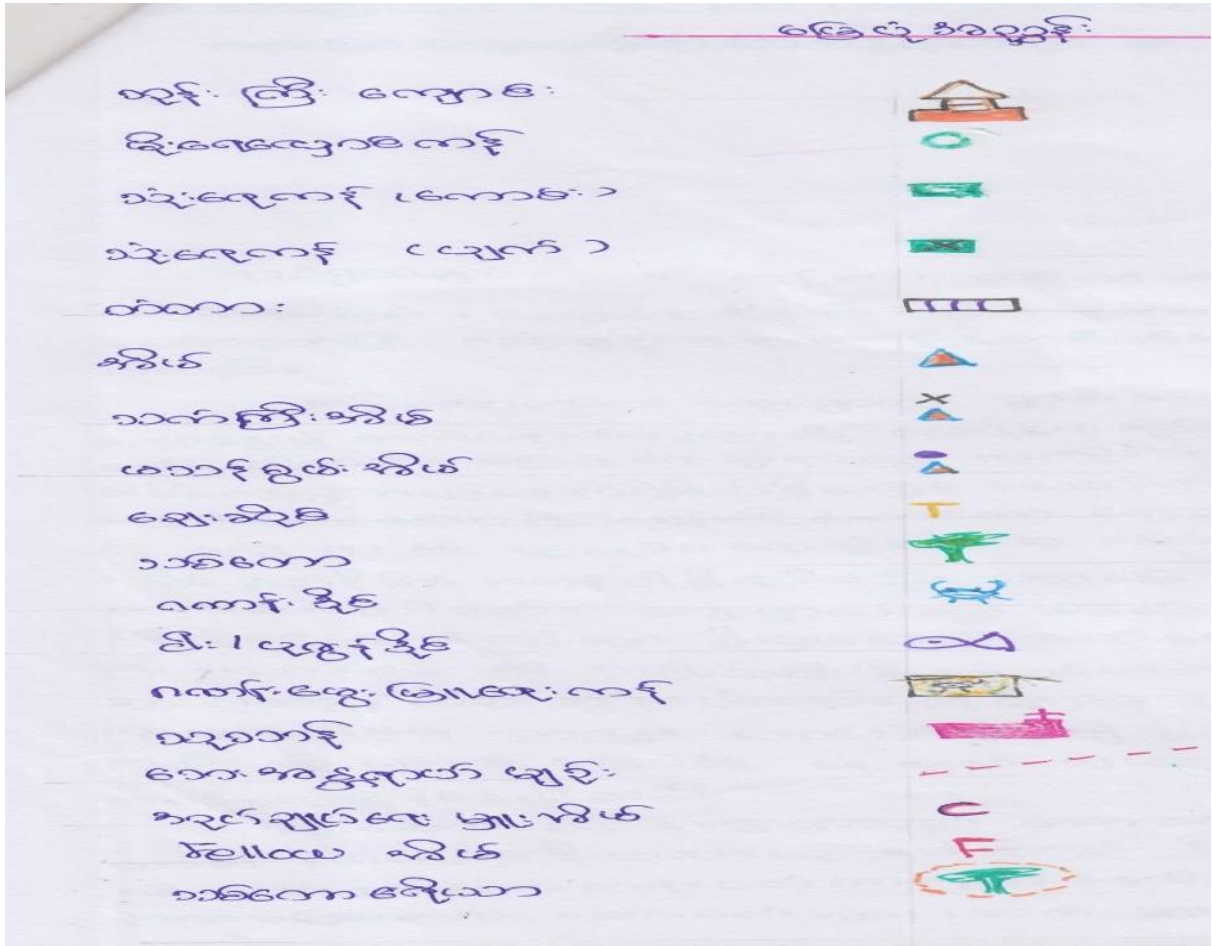 မြေပုံအညွှန်း
ဘုန်းကြီးကျောင်း
မိုးရေလှောင်ကန်
သုံးရေကန် (ကောင်း)
သုံးရေကန် (ပျက်)
တံတား
အိမ်
သက်ကြီးအိမ်
မသန်စွမ်းအိမ်
ဈေးဆိုင်
သစ်တော
ဂဏန်းဒိုင်
ငါး/ပုစွန်ဒိုင်
ဂဏန်းမွေးမြူရေးကန်
သုသာန်
ဘေးအန္တရာယ်မျဉ်း
အုပ်ချုပ်ရေးမှူးအိမ်
အိမ်
သစ်တောဧရိယာ